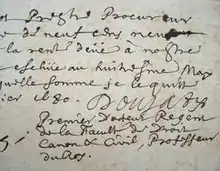 en Prestre Procureur
de neuf cens neuf
la rente deüe a nostre
escheüe au huitiesme May
quelle somme je le quitte
ier 1680. Doujat
Premier Docteur Regent
de la faculté du Droit
Canon & Civil, Professeur
du Roy.